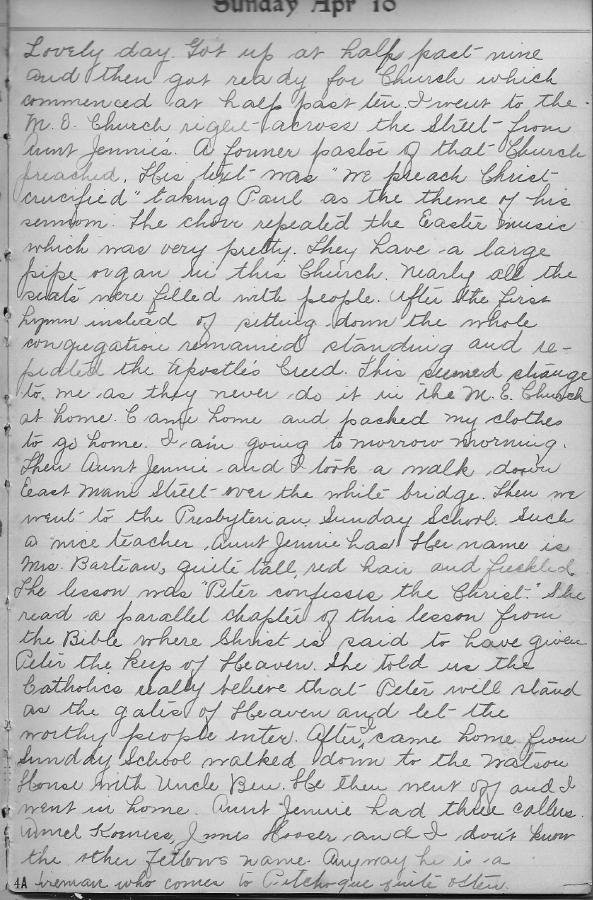 Sunday Apr 10
Lovely day. Got up at half past nine
and then got ready for Church which
commenced at half past ten. I went to the
M. E. Church right across the Street from
Aunt Jennie's. A former pastor of that Church
preached. His text was "We preach Christ
crucified" taking Paul as the theme of his
sermon. The choir repeated the Easter music
which was very pretty. They have a large
pipe organ in this Church. Nearly all the
seats were filled with people. After the first
hymn instead of sitting down the whole
congregation remained standing and re-
peated the Apostle's Creed. This seemed strange
to me as they never do it in the M. E. Church
at home. Came home and packed my clothes
to go home. I am going tomorrow morning.
Then Aunt Jennie and I took a walk down
East Main Street over the white bridge. Then we
went to the Presbyterian Sunday School. Such
a nice teacher Aunt Jennie has. Her name is
Mrs. quite tall, red hair and freckled.
The lesson was "Peter confesses the Christ." She
read a parallel chapter of this lesson from
the Bible where Christ is said to have given
Peter the keys of Heaven. She told us the
Catholics really believe that Peter will stand
as the gates of Heaven and let the
worthy people enter. After I came home from
Sunday School walked down to the Watson
House with Uncle Ben. He then went off and I
went in home. Aunt Jennie had three callers.
and I don't know
the other fellows name. Anyway he is a
4A fireman who comes to Patchogue quite often.